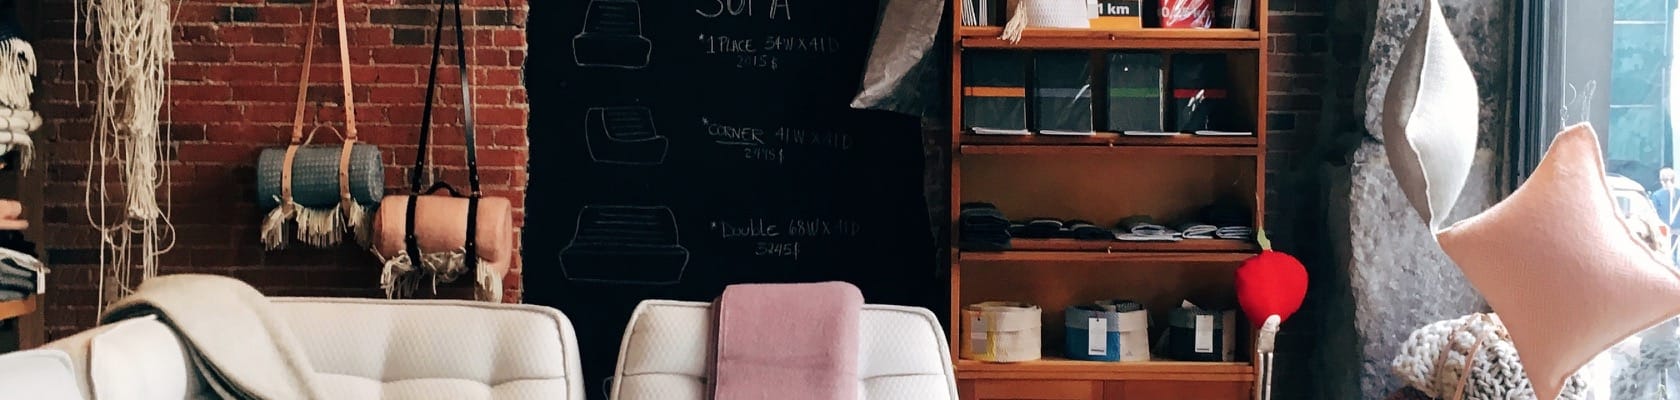 SOFA
1 km
*1 PLACE 34W X 41D
2015$
*CORNER 41W X 41D
2445$
*Double 68W X 41D
3245$